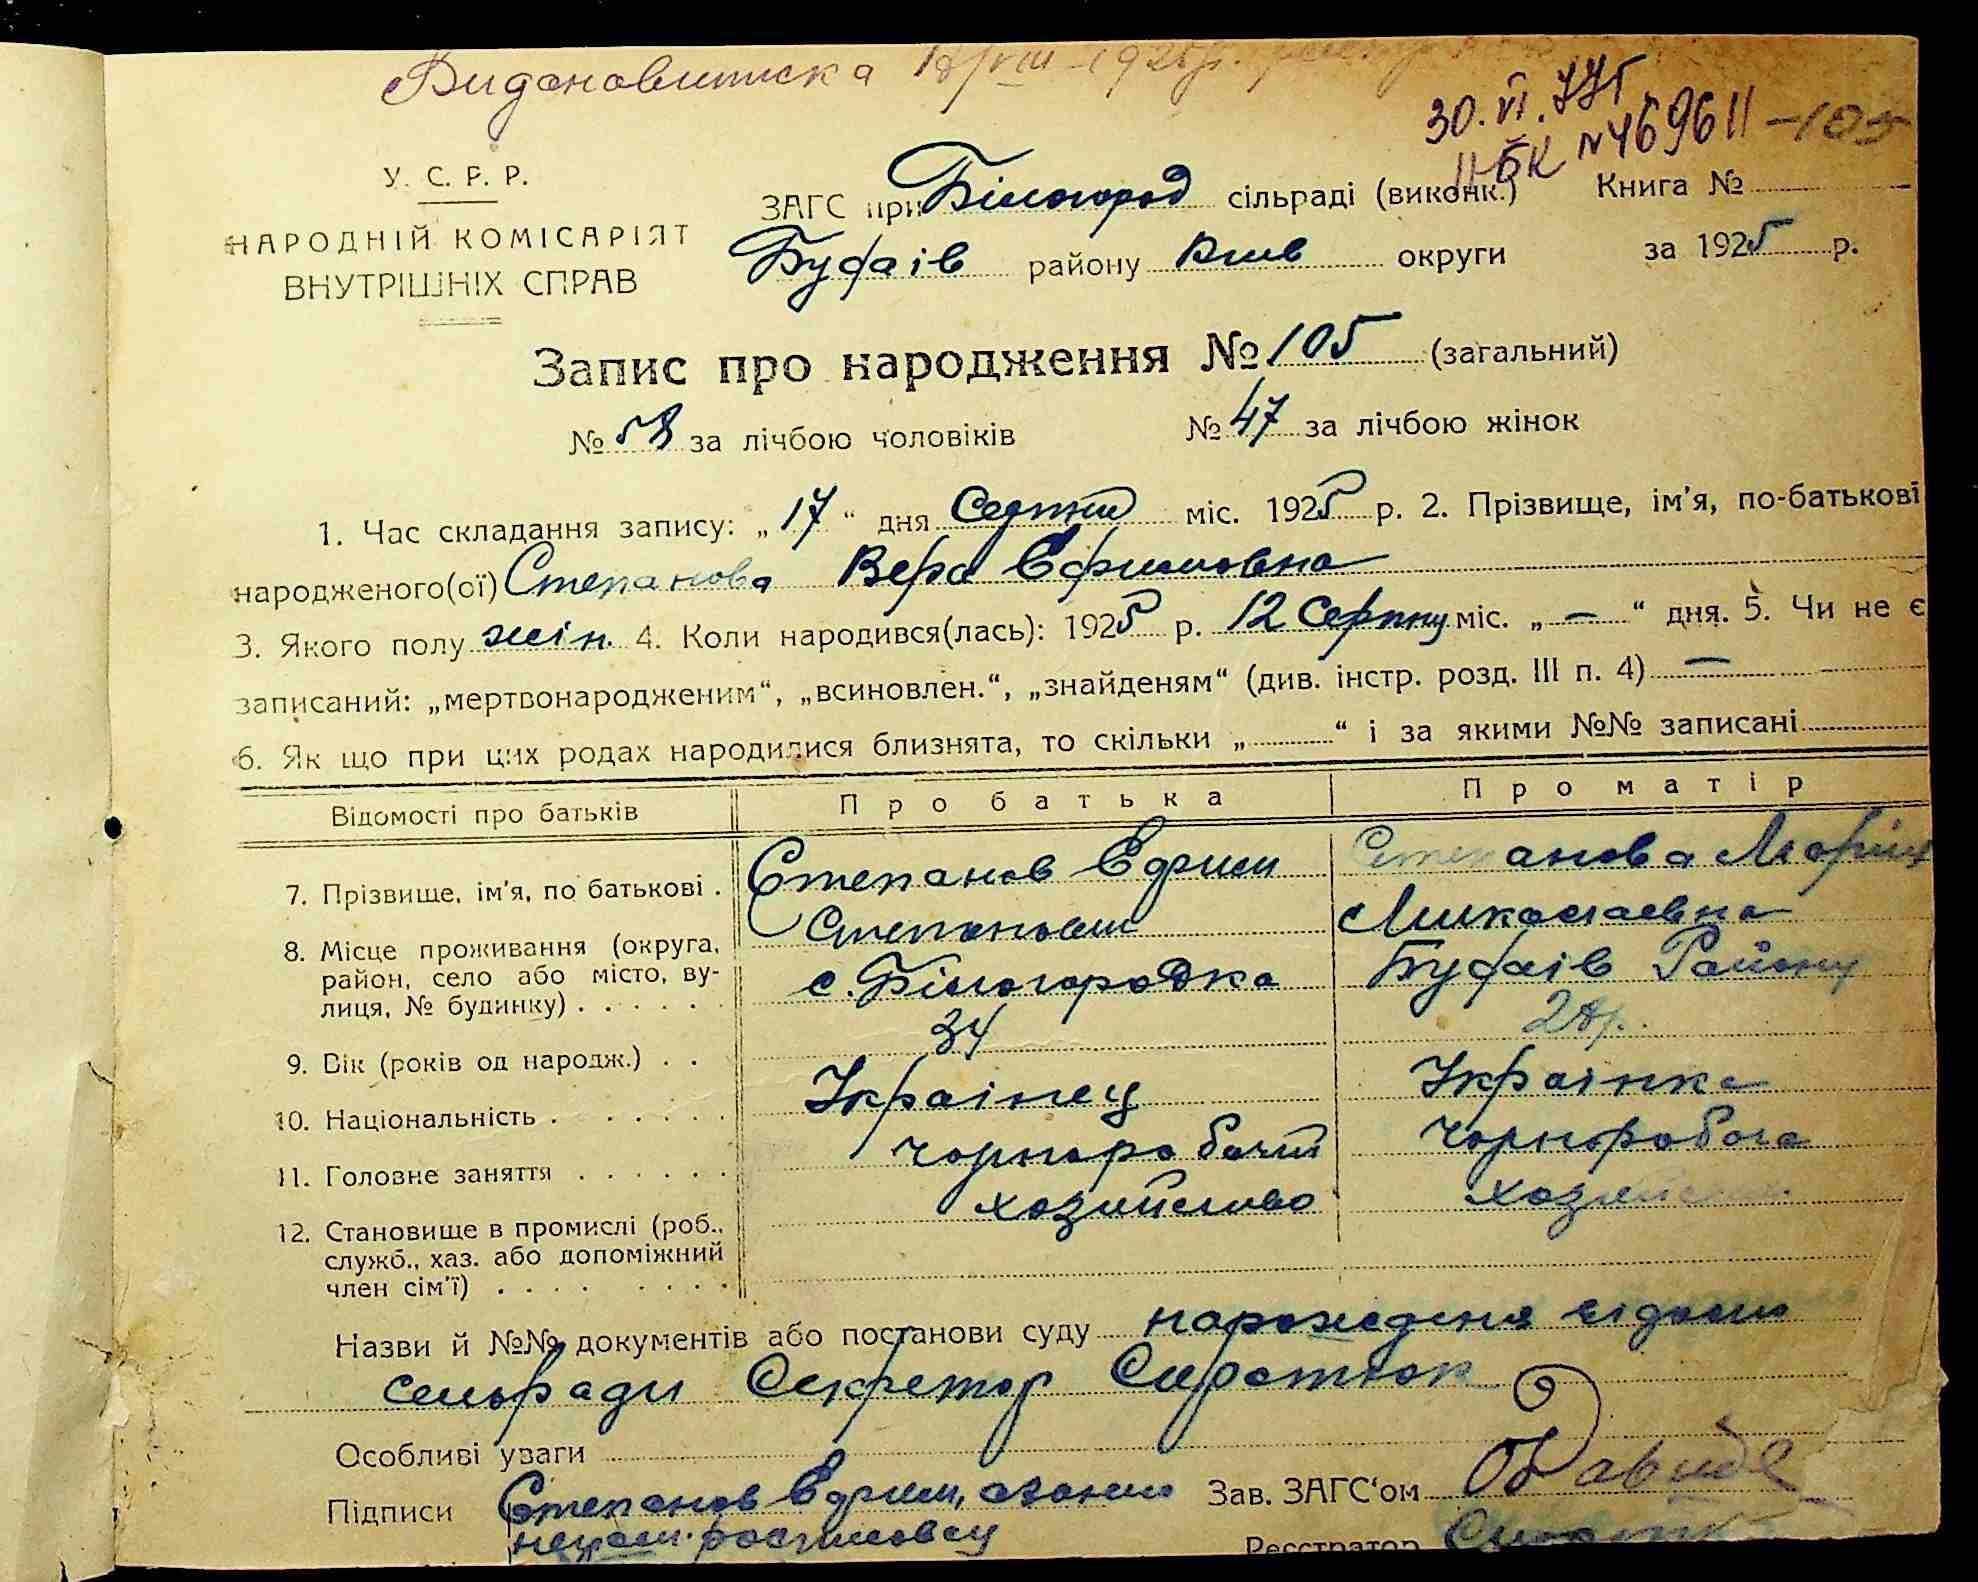 Видана виписка 192
30. VI. 77 г.
II-БК №469611 -105
У. С. Р. Р.
НАРОДНІЙ КОМІСАРІЯТ
ВНУТРІШНІХ СПРАВ
ЗАГС при Білогород сільраді (виконк.) Книга №
Буфаів району Київ округи за 1925 р.
Запис про народження № 105 (загальний)
№ 58 за лічбою чоловіків № 47 за лічбою жінок
1. Час складання запису: „ 17 “ дня Серпня міс. 1925 р. 2. Прізвище, ім’я, по-батькові
народженого(ої) Степанова Вера Ефимовна
3. Якого полу жін. 4. Коли народився(лась): 1925 р. 12 Серпня міс. „ — “ дня. 5. Чи не є
записаний: „мертвонародженим“, „всиновлен.“, „знайденям“ (див. інстр. розд. III п. 4) —
6. Як що при цих родах народилися близнята, то скільки „ “ і за якими №№ записані
Відомості про батьків Про батька Про матір
7. Прізвище, ім’я, по батькові . Степанов Ефим Степанова Марія
Степанович Миколаевна
8. Місце проживання (округа,
район, село або місто, ву-
лиця, № будинку) . . . . . . с. Білогородка Буфаів Району
9. Вік (років од народж.) . . 34 28 р.
10. Національність . . . . . . . Украінец Украінка
11. Головне заняття . . . . . . чорноробочий чорноробоча
хозяйство
12. Становище в промислі (роб.,
служб., хаз. або допоміжний
член сім’ї) . . . . . . . .
Назви й №№ документів або постанови суду народженя відомо
сельради Секретар Сиротюк
Особливі уваги
Підписи Степанов Ефим, Зав. ЗАГС‘ом
Реєстратор